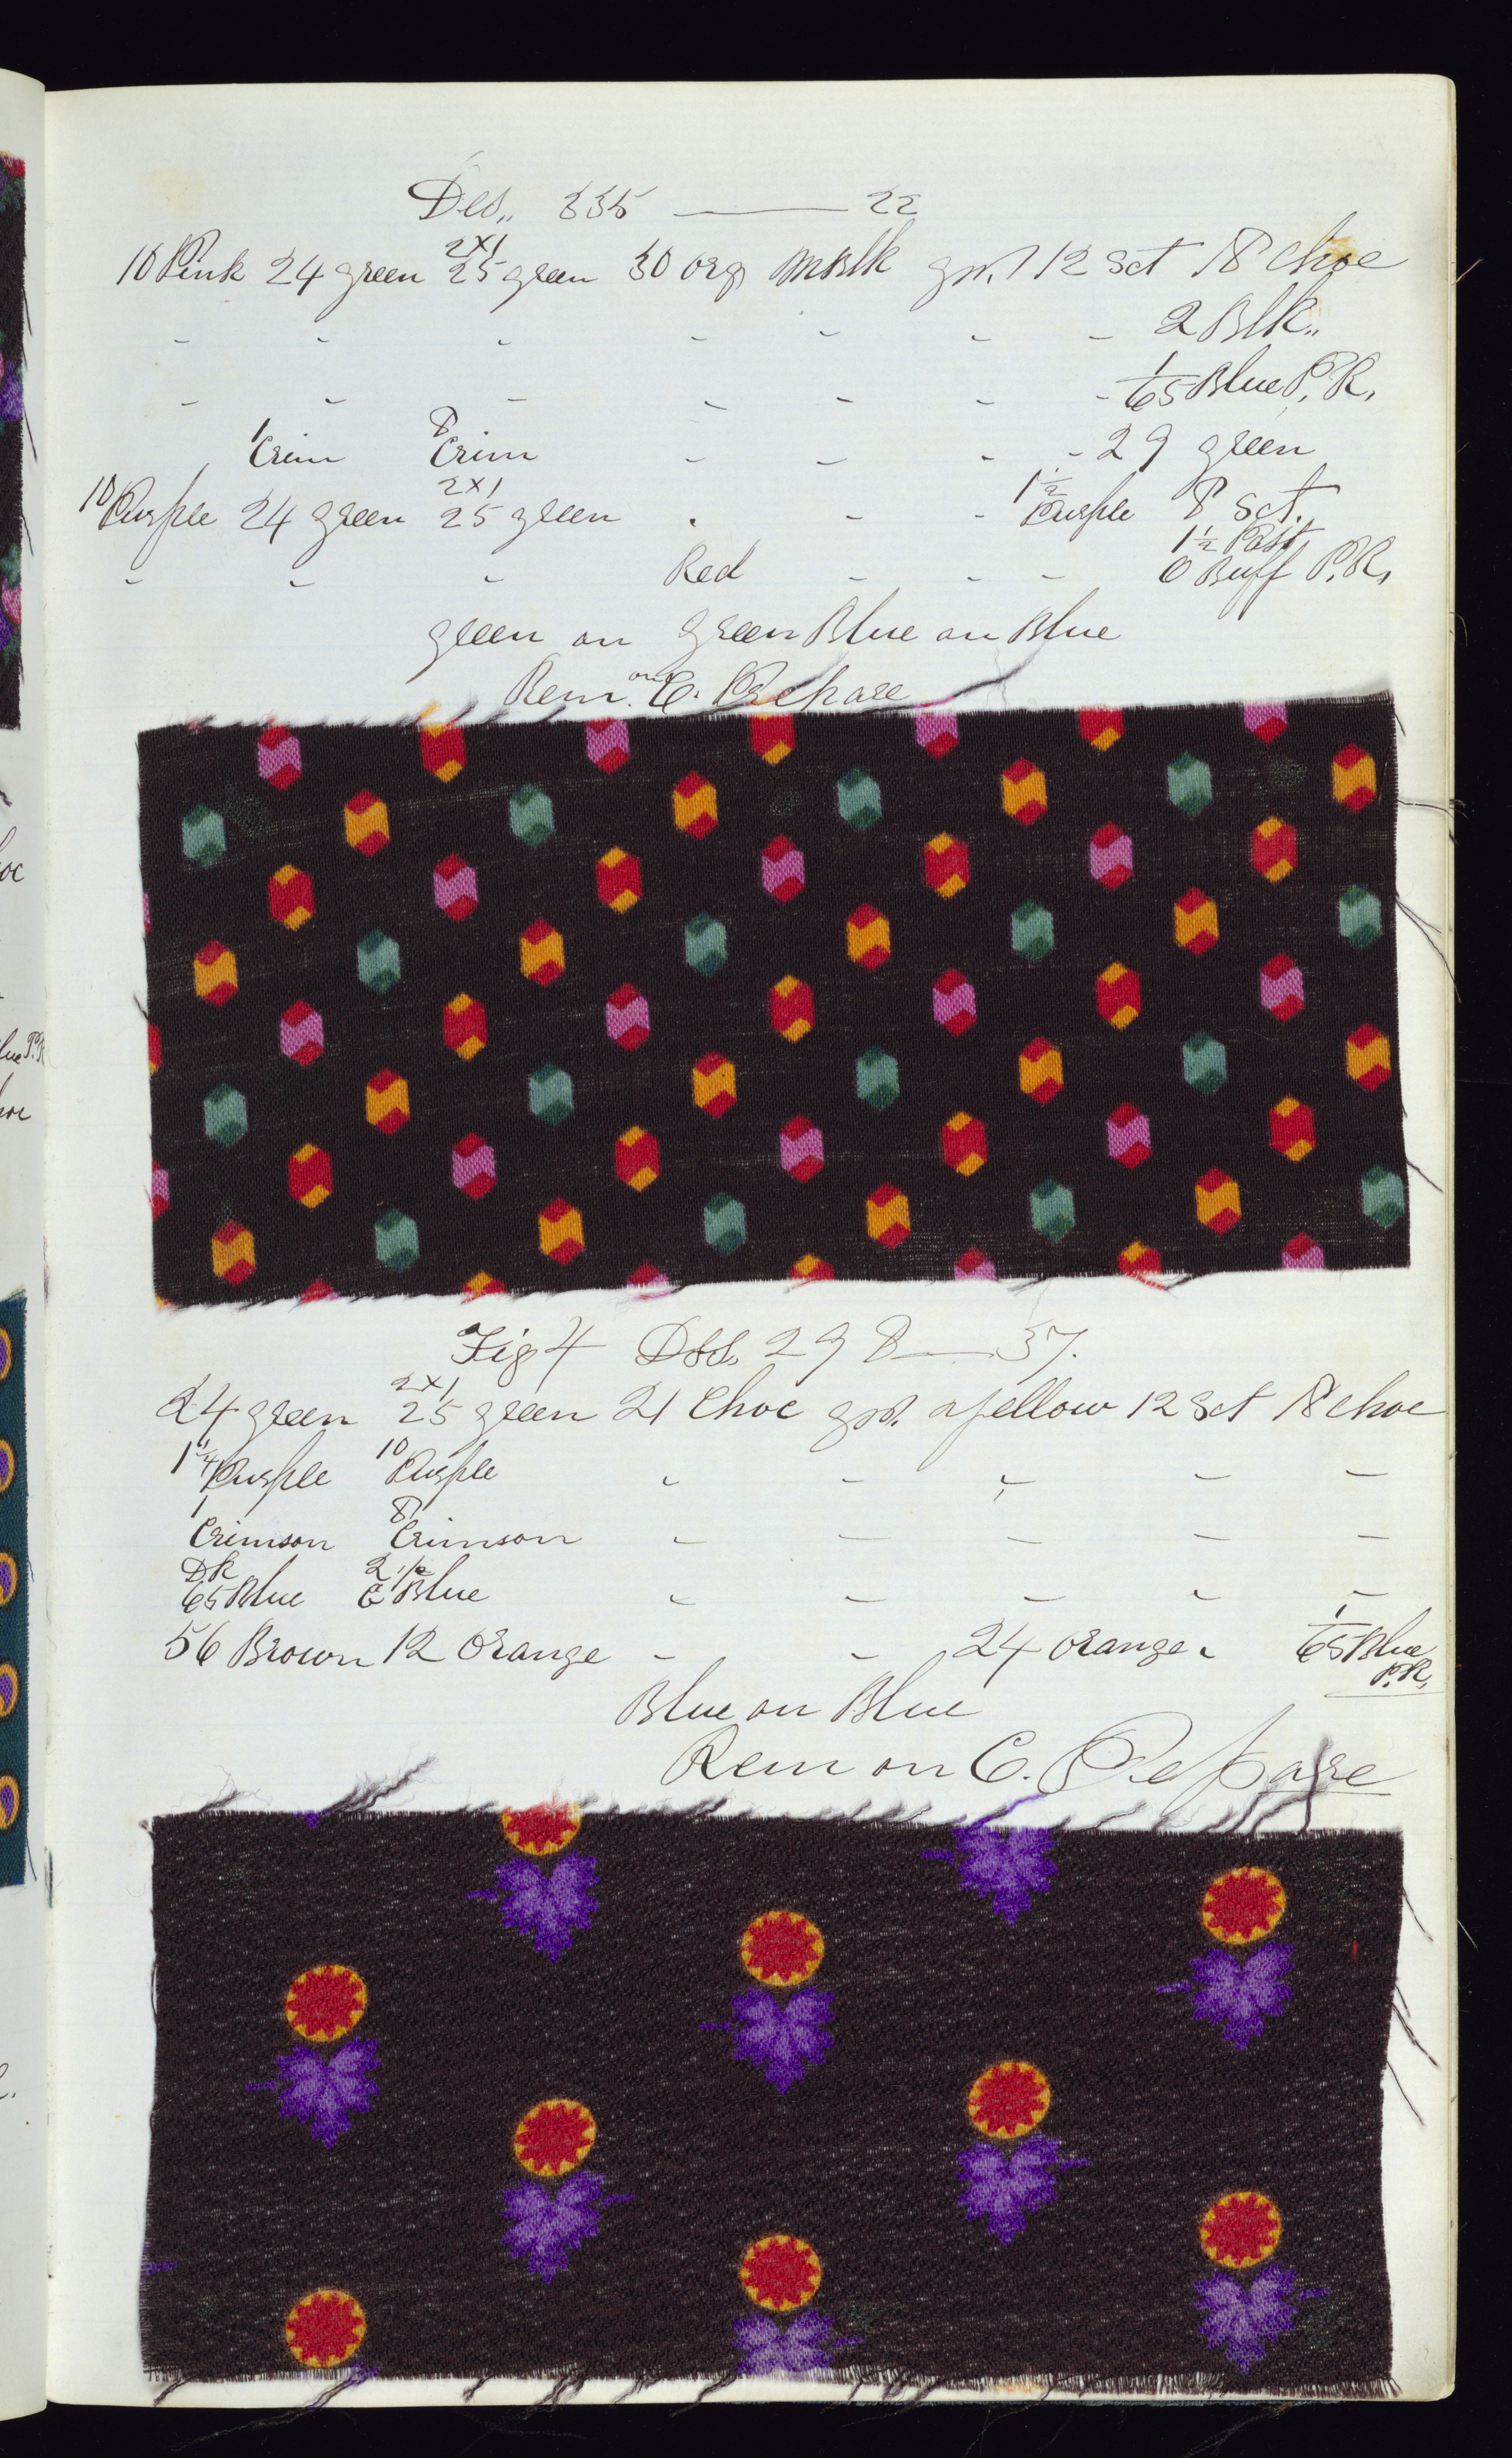 Des,, 335 — 22
10 Pink 24 green 2x1 25 green 30 org MBlk gro. 12 Sct 18 choc
" " " " " " " 2 Blk,,
" " " " " " " 1/65 Blue P.R.
" 1 Crim 8 Crim " " " " 29 green
10 Purple 24 green 2x1 25 green " " " 1½ Purple 8 Sct.
1½ Past
" " " Red " " " 0 Buff P.R.
green on green Blue on Blue
Rem. on C. Prepare
Fig 4 Des. 298 — 37.
24 green 2x1 25 green 21 Choc gro. yellow 12 Sct 18 choc
1¼ Purple 10 Purple " " " " "
1 Crimson 8 Crimson " " " " "
Dk 65 Blue 2½ C Blue " " " " "
56 Brown 12 Orange " " 24 Orange " 1/65 Blue P.R.
Blue on Blue
Rem on C. Prepare
hoc
lue P.R
hoc